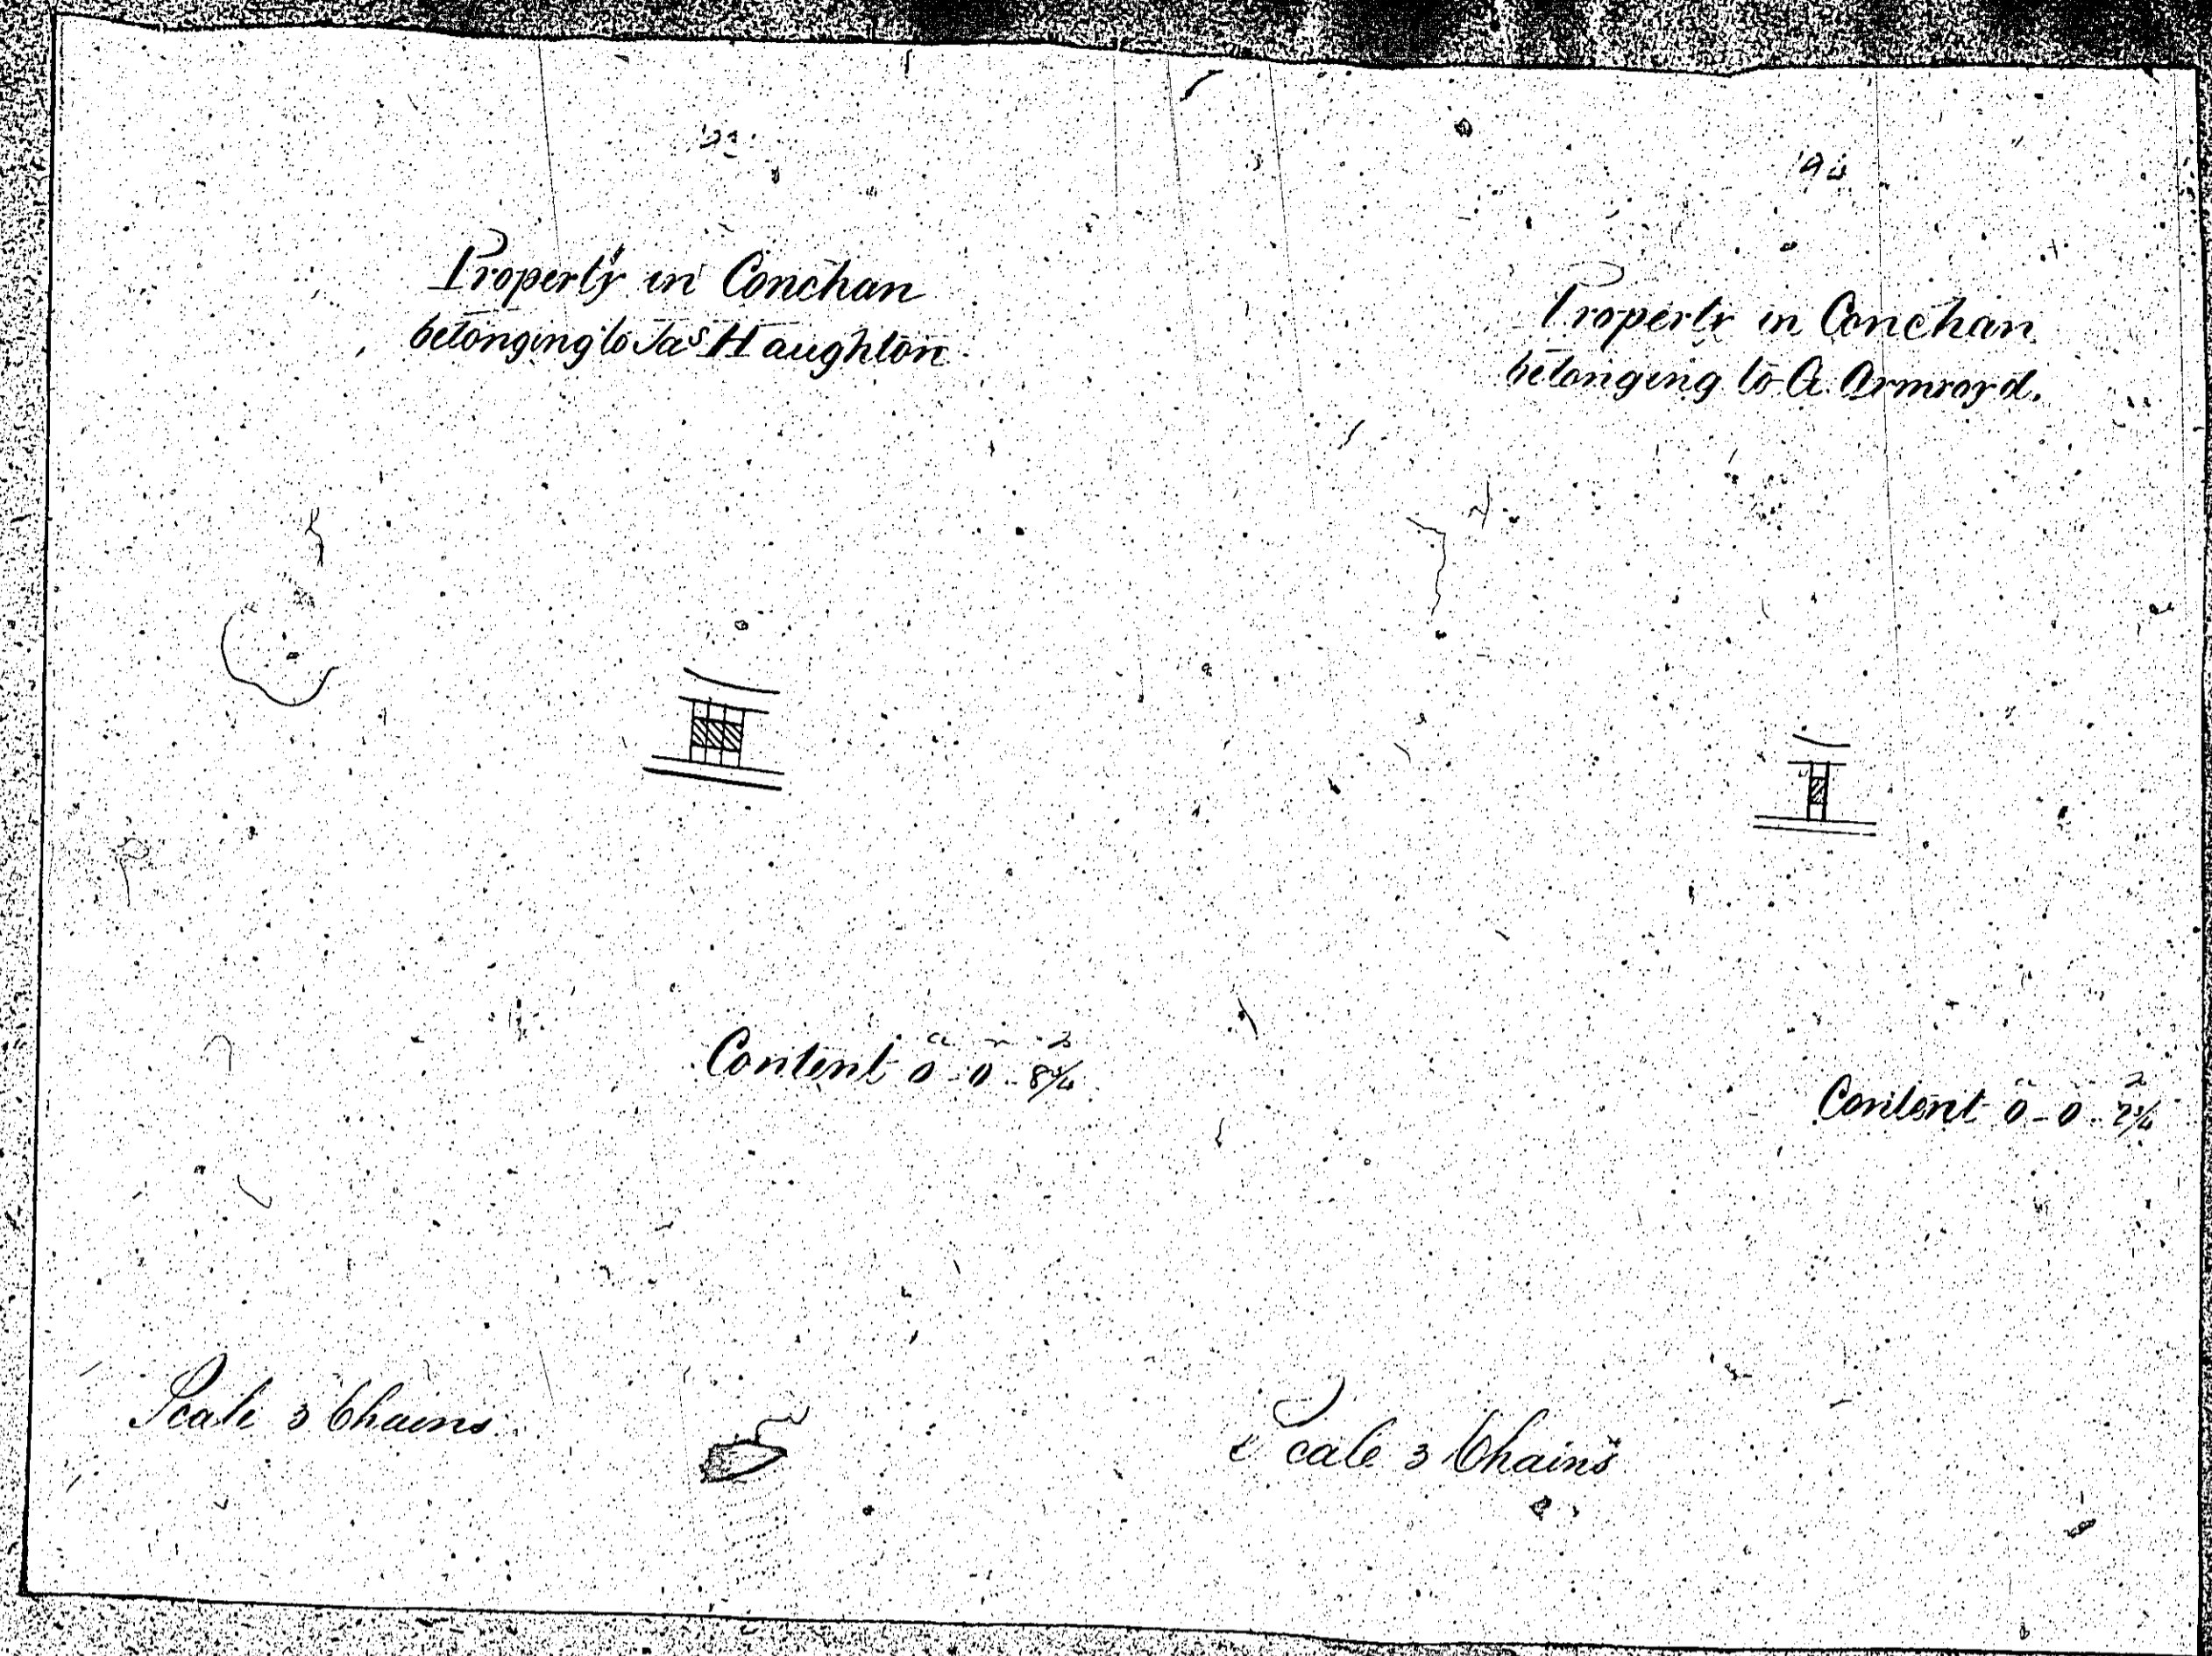 Property in Conchan
belonging to Jas Haughton
Content 0 - 0 - 8 3/4
Scale 3 Chains
Property in Conchan
belonging to A. Ormroyd.
Content 0 - 0 - 2 3/4
Scale 3 Chains